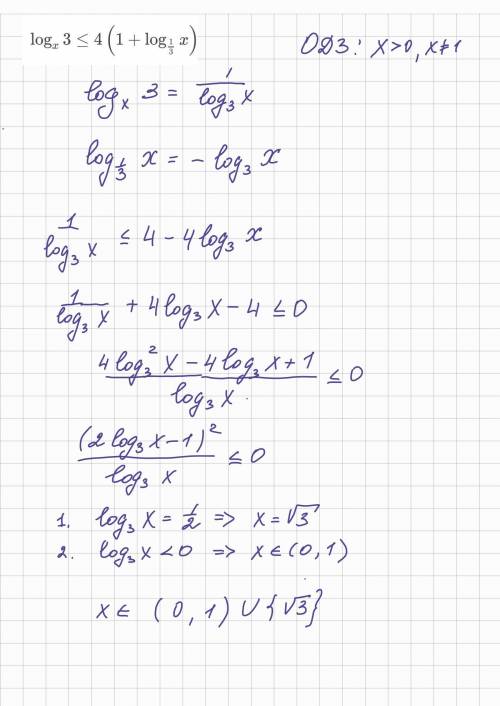 log_x 3 ≤ 4 (1 + log_{1/3} x) ОДЗ: x>0, x≠1
log_x 3 = 1/(log_3 x)
log_{1/3} x = - log_3 x
1/(log_3 x) ≤ 4 - 4 log_3 x
1/(log_3 x) + 4 log_3 x - 4 ≤ 0
(4 log_3^2 x - 4 log_3 x + 1)/(log_3 x) ≤ 0
(2 log_3 x - 1)^2/(log_3 x) ≤ 0
1. log_3 x = 1/2 => x = √3
2. log_3 x < 0 => x ∈ (0, 1)
x ∈ (0, 1) ∪ {√3}